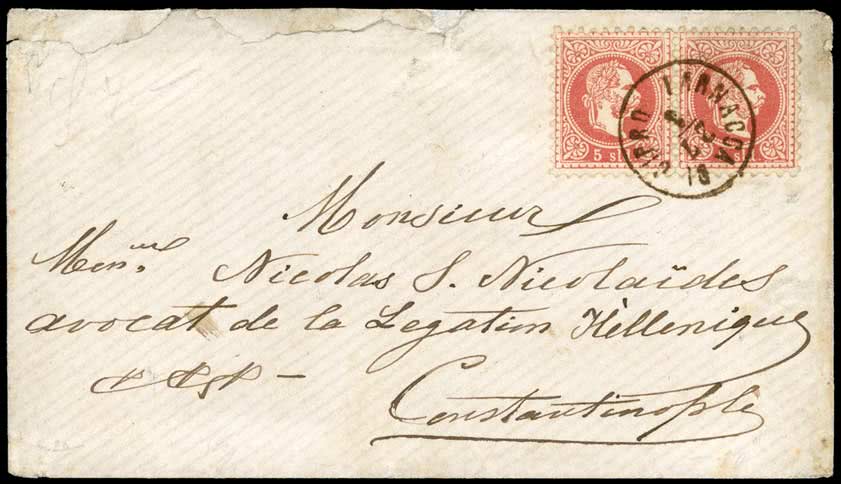 5 s
LARNACCA
CIPRO
Monsieur
Nicolas S. Nicolaïdes
avocat de la Legation Hèllenique
Constantinople